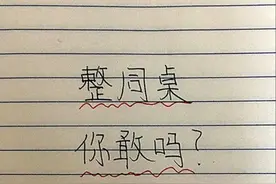 整同桌
你敢吗?